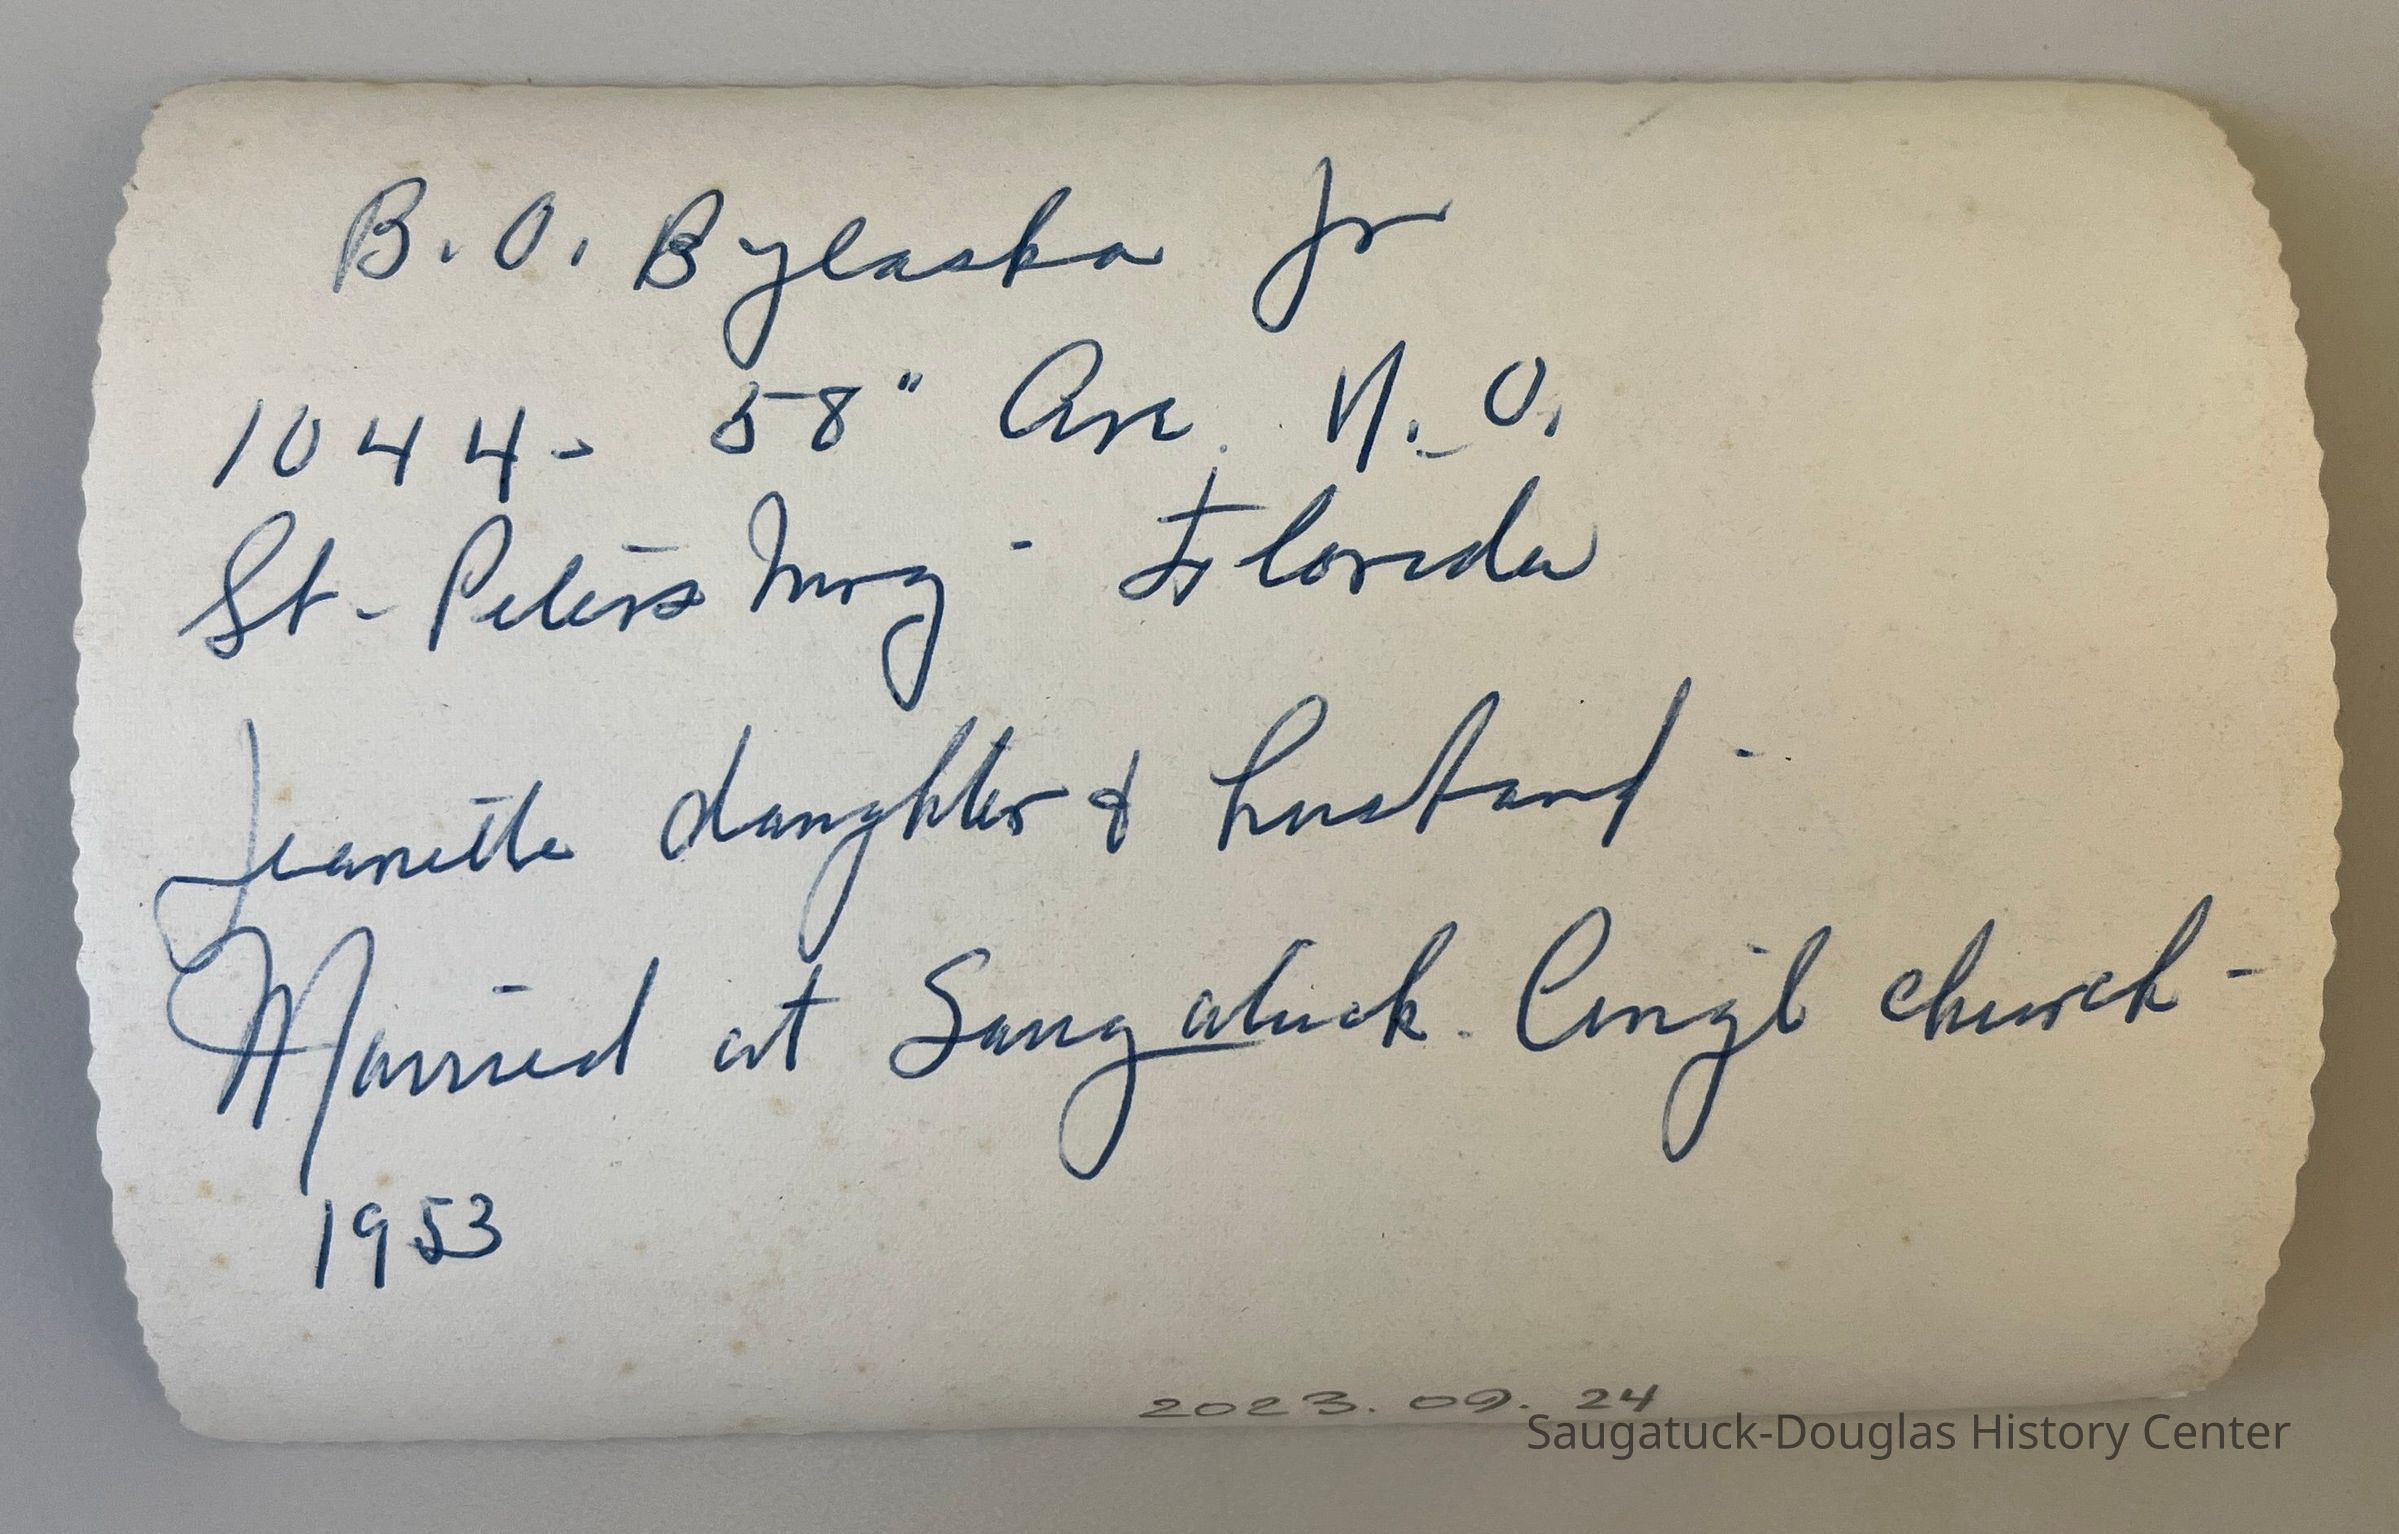 B. O. Bylaska Jr
1044- 58" Ave. N. O.
St- Petersburg - Florida
Jeanette daughter & husband -
Married at Saugatuck. Cong'l church -
1953
2023. 09. 24
Saugatuck-Douglas History Center